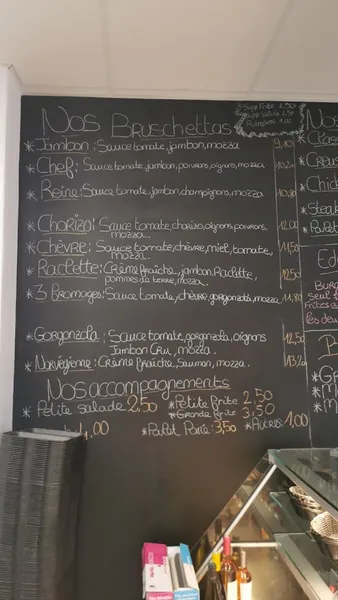 Nos Bruschettas
Supp Frite 2,50
* Jambon: Sauce tomate, jambon, mozza 9,10
* Chef: Sauce tomate, jambon, poivrons, oignons, mozza 10,20
* Reine: Sauce tomate, jambon, champignons, mozza
* Chorizo: Sauce tomate, chorizo, oignons, poivrons, 12,00
mozza.
* Chèvre: Sauce tomate, chèvre, miel, tomate, 11,50
mozza.
* Raclette: Crème fraîche, jambon, Raclette, 12,50
pommes de terre, mozza.
* 3 Fromages: Sauce tomate, chèvre, gorgonzola, mozza 11,80
* Gorgonzola: Sauce tomate, gorgonzola, oignons 12,50
Jambon Cru, mozza.
* Norvégienne: Crème fraîche, Saumon, mozza. 13,20
Nos accompagnements
* Petite salade 2,50 * Petite frite 2,50
* Grande frite 3,50
1,00 * Petit Pané: 3,50 * Autres: 1,00
Nos